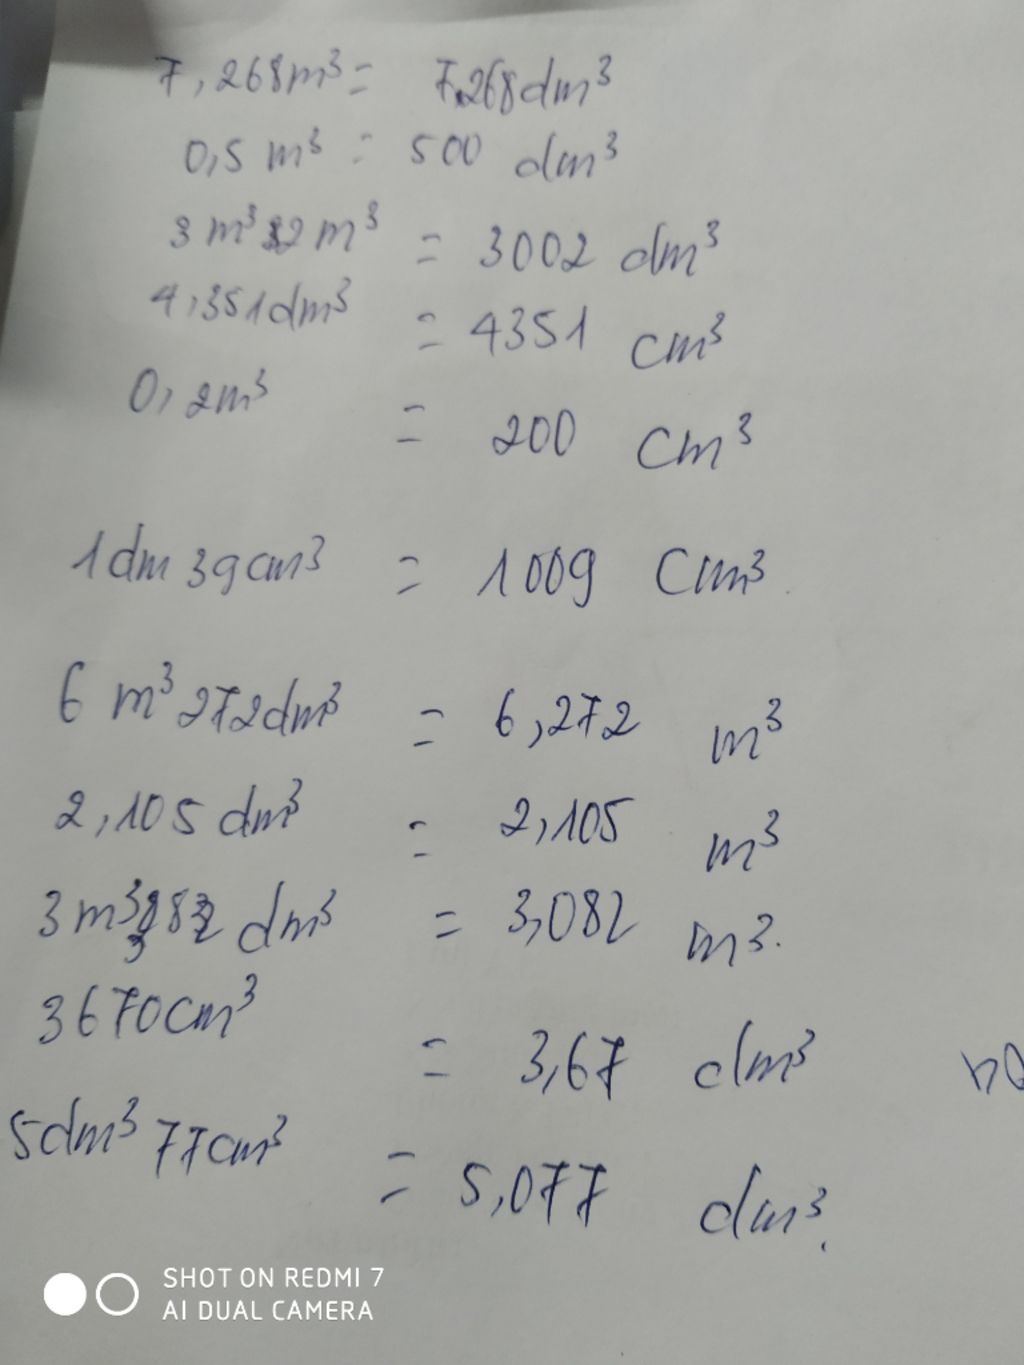 7,268m³ = 7.268dm³
0,5 m³ = 500 dm³
3 m³ 2 m³ = 3002 dm³
4,351dm³ = 4351 cm³
0,2m³ = 200 cm³
1dm 3 9cm³ = 1009 cm³
6 m³ 272dm³ = 6,272 m³
2,105 dm³ = 2,105 m³
3 m³ 82 dm³ = 3,082 m³.
3670cm³ = 3,67 dm³
5dm³ 77cm³ = 5,077 dm³.
SHOT ON REDMI 7
AI DUAL CAMERA